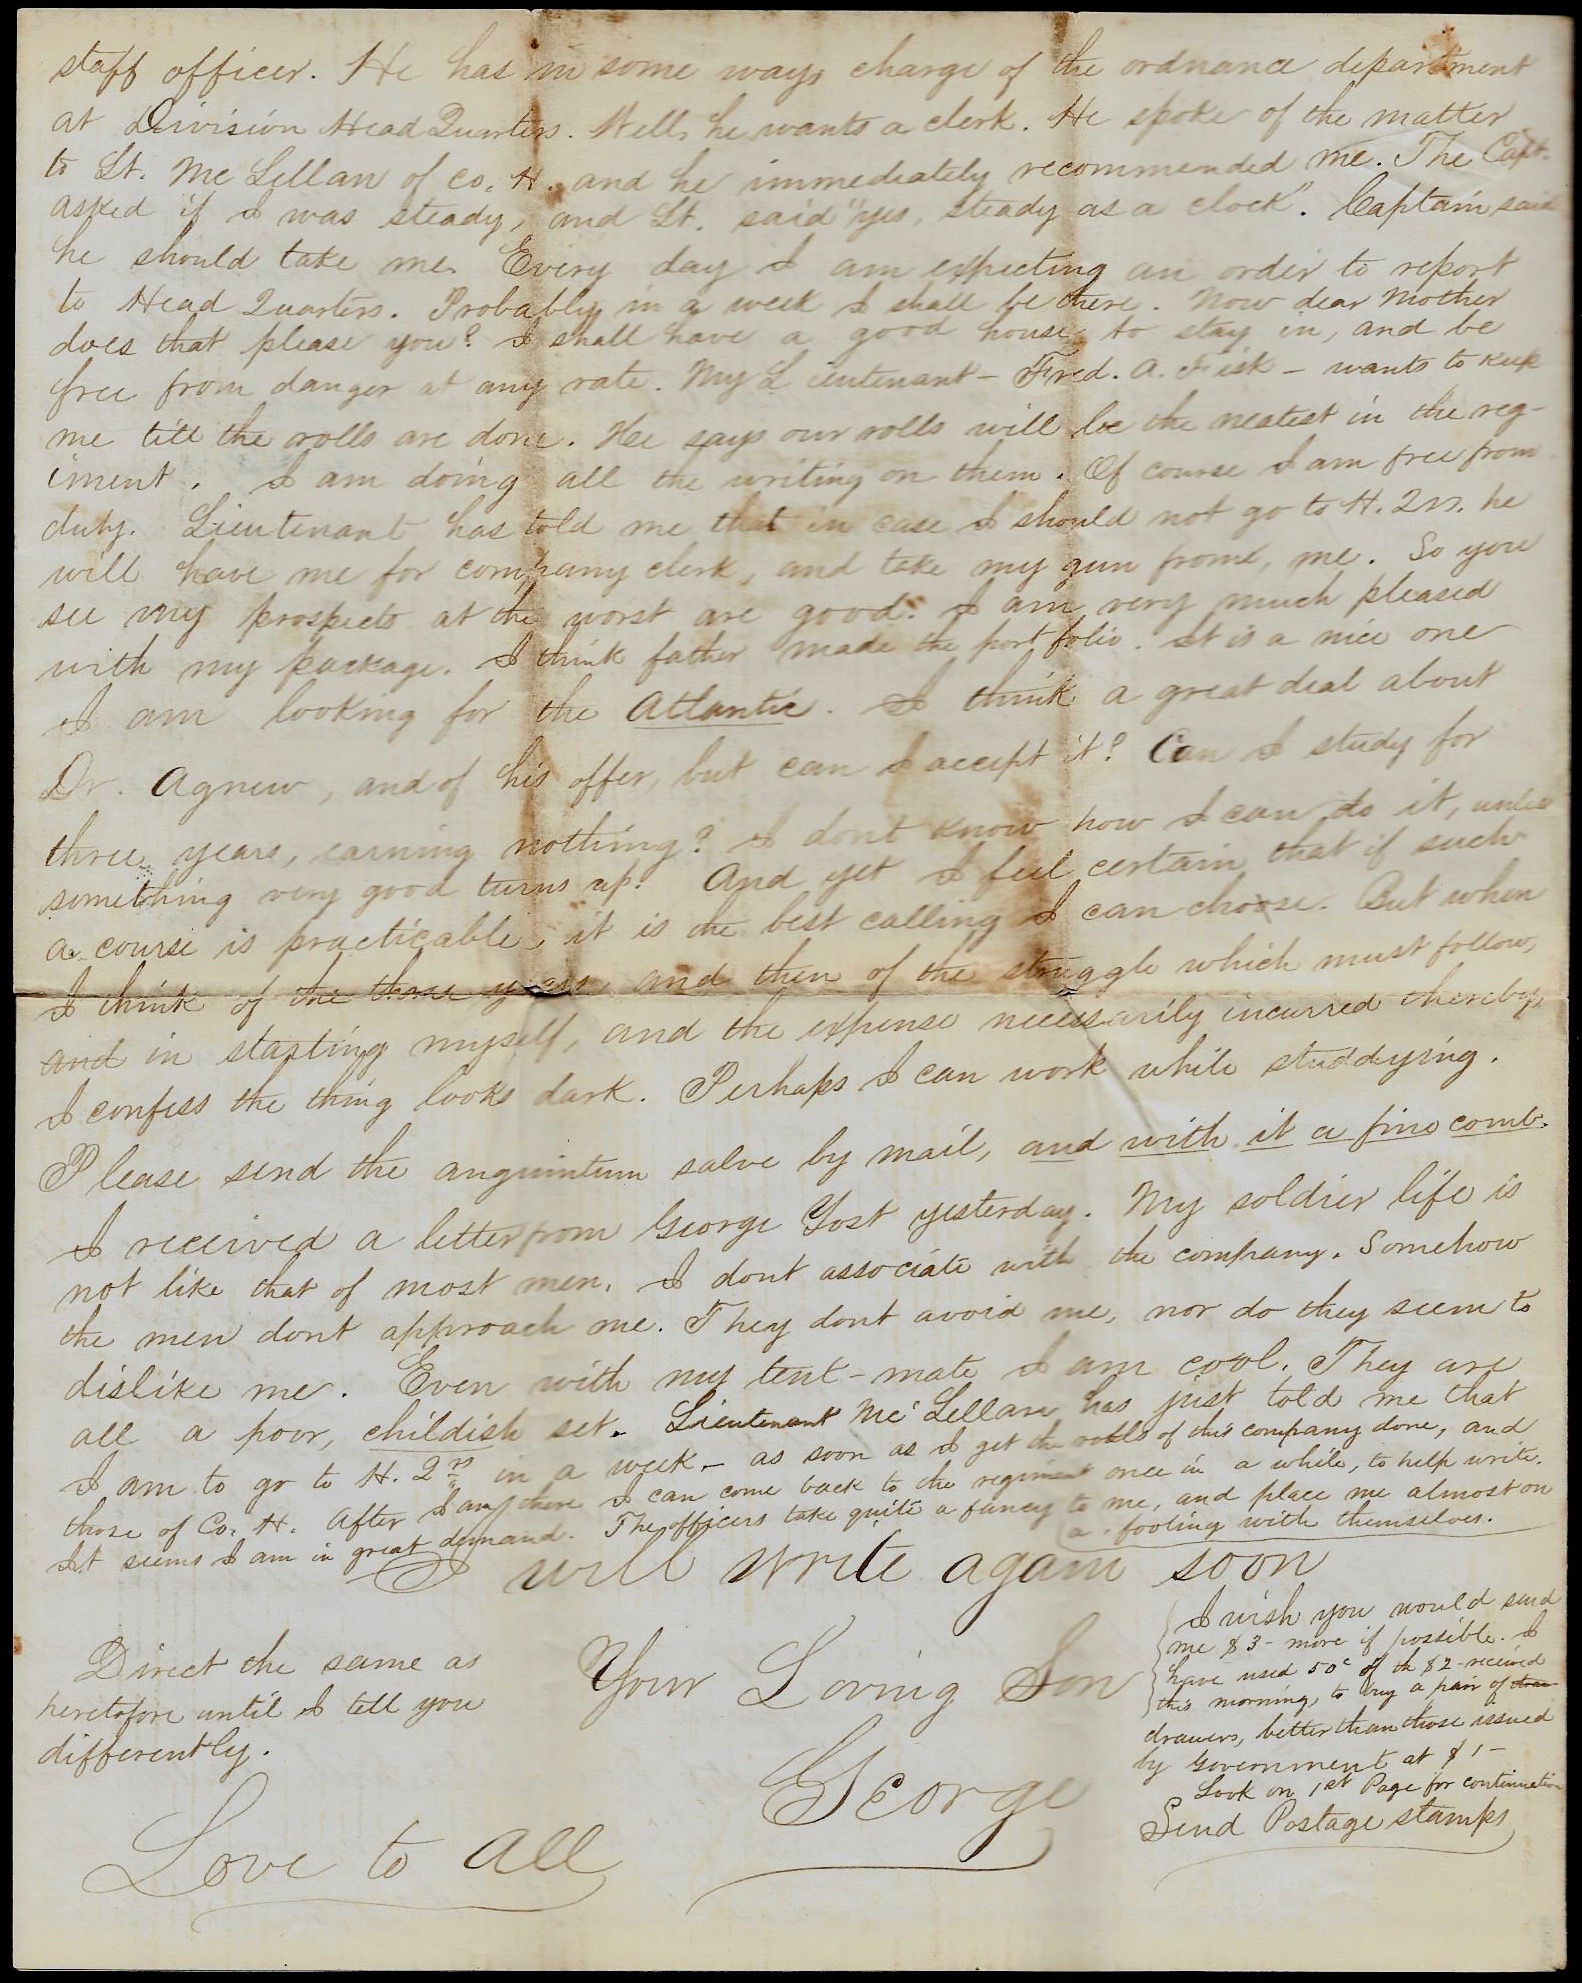 staff officer. He has in some ways charge of the ordnance department
at Division Head Quarters. Well, he wants a clerk. He spoke of the matter
to Lt. Mc Lellan of Co. H. and he immediately recommended me. The Capt.
asked if I was steady, and Lt. said "yes, steady as a clock". Captain said
he should take me. Every day I am expecting an order to report
to Head Quarters. Probably in a week I shall be there. Now dear Mother
does that please you? I shall have a good house to stay in, and be
free from danger at any rate. My Lieutenant - Fred. A. Fisk - wants to keep
me till the rolls are done. He says our rolls will be the neatest in the reg-
iment. I am doing all the writing on them. Of course I am free from
duty. Lieutenant has told me that in case I should not go to H. Qrs. he
will have me for company clerk, and take my gun from me. So you
see my prospects at the worst are good. I am very much pleased
with my package. I think father made the port folio. It is a nice one
I am looking for the Atlantic. I think a great deal about
Dr. Agnew, and of his offer, but can I accept it? Can I study for
three years, earning nothing? I dont know how I can do it, unless
something very good turns up. And yet I feel certain that if such
a course is practicable, it is the best calling I can choose. But when
I think of the three years, and then of the struggle which must follow,
and in starting myself, and the expense necessarily incurred thereby,
I confess the thing looks dark. Perhaps I can work while studdying.
Please send the anguintum salve by mail, and with it a fine comb.
I received a letter from George Yost yesterday. My soldier life is
not like that of most men. I dont associate with the company. Somehow
the men dont approach me. They dont avoid me, nor do they seem to
dislike me. Even with my tent-mate I am cool. They are
all a poor, childish set. Lieutenant Mc Lellan has just told me that
I am to go to H. Qrs. in a week - as soon as I get the rolls of this company done, and
those of Co. H. After I am there I can come back to the regiment once in a while, to help write.
It seems I am in great demand. The officers take quite a fancy to me, and place me almost on
a footing with themselves.
I will write again soon
Your Loving Son
George
Direct the same as
heretofore until I tell you
differently.
Love to all
I wish you would send
me $3 - more if possible. I
have used 50c of the $2 - received
this morning, to buy a pair of
drawers, better than those issued
by Government at $1 -
Look on 1st Page for continuation
Send Postage stamps